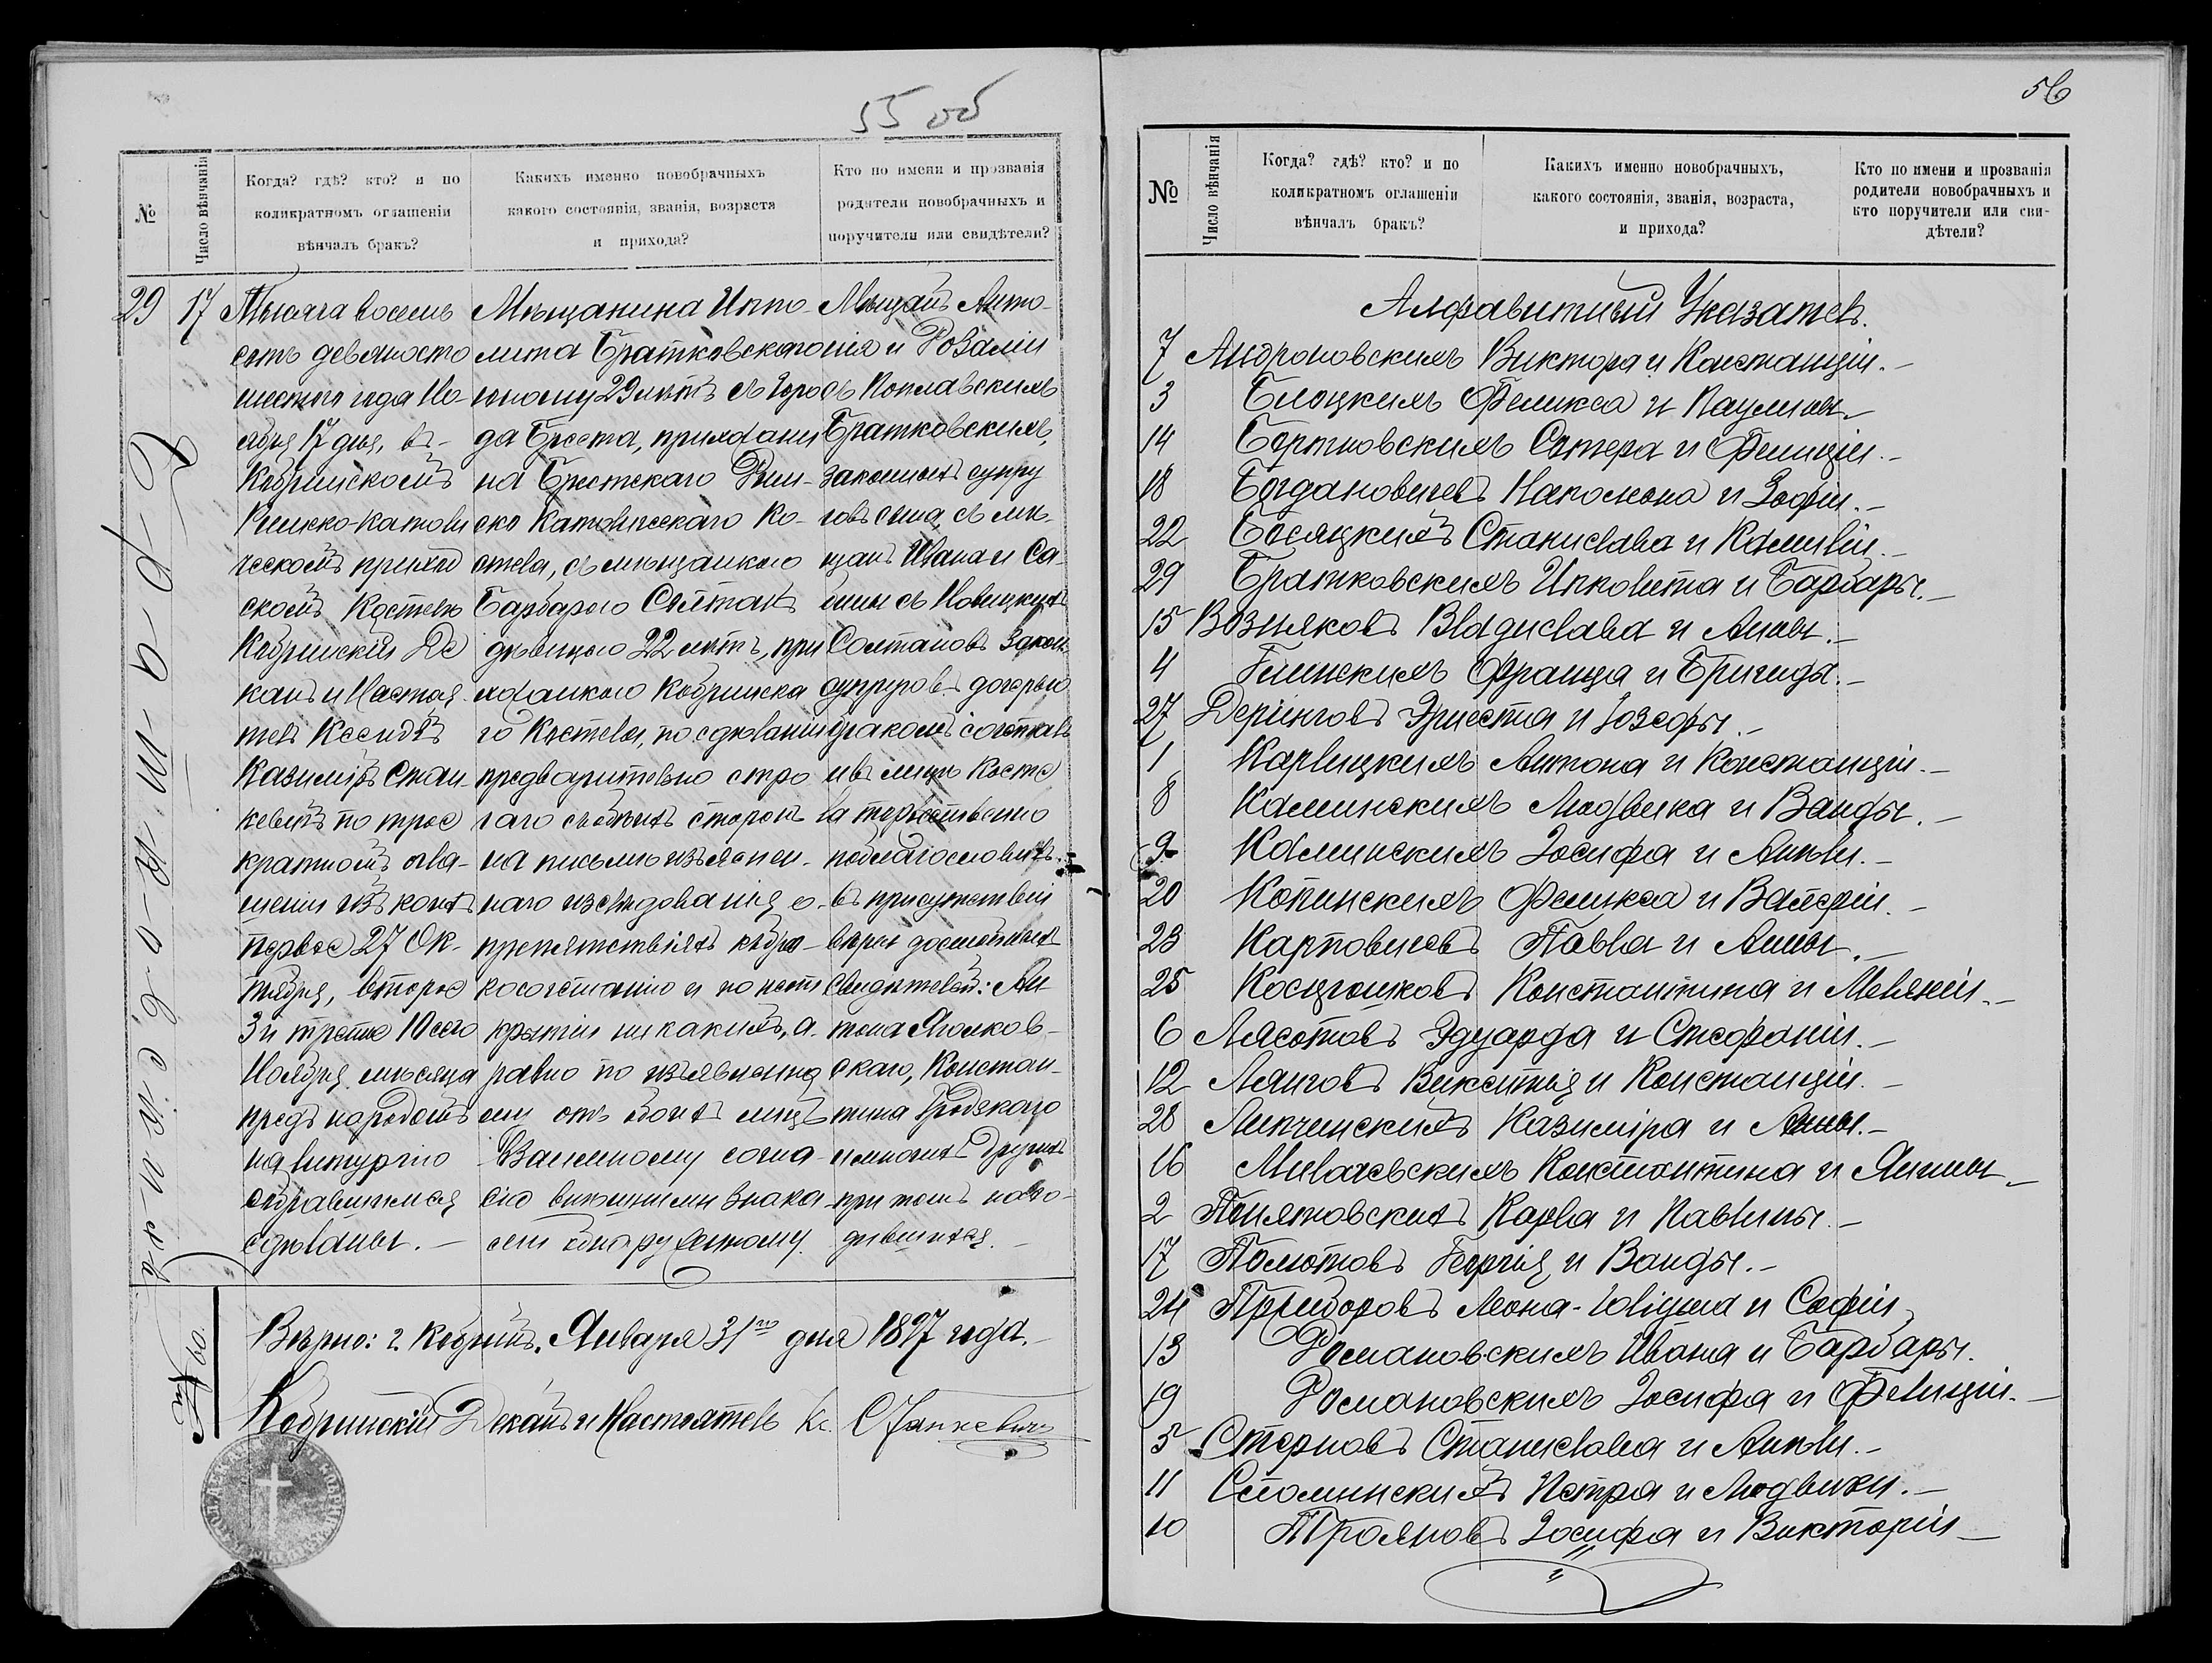 55 об
№
Число вѣнчанія
Когда? гдѣ? кто? и по
коликратномъ оглашеніи
вѣнчалъ бракъ?
Какихъ именно новобрачныхъ
какого состоянія, званія, возраста
и прихода?
Кто по имени и прозванія
родители новобрачныхъ и
поручители или свидѣтели?
29
17
Тысяча восемь
сотъ девяносто
шестого года Но-
ября 17 дня, въ
Кобринскомъ
Римско-Католи
ческомъ приход
скомъ Костелѣ
Кобринскій Де
канъ и Настоя
тель Ксендзъ
Казиміръ Стан-
кевичъ по трое
кратномъ огла-
шеніи изъ коихъ
первое 27 Ок-
тября, второе
3 и третье 10 сего
Ноября мѣсяца
предъ народомъ
на литургію
собравшимся
сдѣланы. —
Мѣщанина Иппо-
лита Братковскаго
юношу 29 лѣтъ съ горо
да Бреста, прихожани
на Брестскаго Рим-
ско Католическаго Ко-
стела, съ мѣщанкою
Барбарою Солтанъ
дѣвицею 22 лѣтъ, при
хожанкою Кобринска
го Костела, по сдѣланіи
предварительно стро
гаго съ обоихъ сторонъ
на письмѣ изъяснен-
наго изслѣдованія о
препятствіяхъ къ бра-
косочетанію и по неот
крытіи никакихъ, а
равно по изъявленно
ми отъ обоихъ лицъ
взаимному согла-
сію внѣшними знака-
ми обнаруженному.
Мѣщанъ Анто-
нія и Розаліи
съ Поплавскихъ
Братковскихъ,
законныхъ супру
говъ сына, съ мѣ-
щанъ Ивана и Са-
бины съ Новицкихъ
Солтановъ закон.
супруговъ дочерью
бракомъ сочеталъ
и въ лицѣ Косте
ла торжественно
поблагословилъ
въ присутствіи
вѣры достойныхъ
свидѣтелей: Ан
тона
скаго, Констан-
тина
и многихъ другихъ
при томъ нахо-
дившихся. —
Вѣрно: г. Кобринъ. Января 31го дня 1897 года.
Кобринскій Деканъ и Настоятель Кс. Станкевичъ
56
№
Число вѣнчанія
Когда? гдѣ? кто? и по
коликратномъ оглашеніи
вѣнчалъ бракъ?
Какихъ именно новобрачныхъ,
какого состоянія, званія, возраста,
и прихода?
Кто по имени и прозванія
родители новобрачныхъ и
кто поручители или сви-
дѣтели?
Алфавитный Указатель.
7 Андроновскихъ Виктора и Констанціи. —
3 Билоцкихъ Феликса и Паулины —
14 Бортновскихъ Сотера и Фелиціи. —
18 Богдановичевъ Наполеона и Зофіи. —
22 Босяцкихъ Станислава и Камиліи. —
29 Братковскихъ Ипполита и Барбары. —
15 Возняковъ Владислава и Анны. —
4 Глинскихъ Франца и Бригиды. —
27 Деринговъ Эрнеста и Іозефы. —
1 Карвицкихъ Антона и Констанціи. —
8 Каминскихъ Людвика и Ванды. —
9 Каминскихъ Іосифа и Анѣли. —
20 Копинскихъ Феликса и Валеріи. —
23 Карповичевъ Павла и Анны. —
25 Косцюшковъ Константина и Меляніи. —
6 Лясотовъ Эдуарда и Стефаніи. —
12 Лянговъ Викентія и Констанціи. —
28 Липчинскихъ Казиміра и Анны. —
16 Милачевскихъ Константина и Янины —
2 Понятовскихъ Карла и Павлины. —
17 Полютовъ Георгія и Ванды. —
24 Леона-Юліуша и Софіи
13 Романовскихъ Ивана и Барбары.
19 Романовскихъ Іосифа и Фелиціи. —
5 Стерновъ Станислава и Анѣли. —
11 Сполинскихъ Петра и Людвики. —
10 Трояновъ Іосифа и Викторіи —